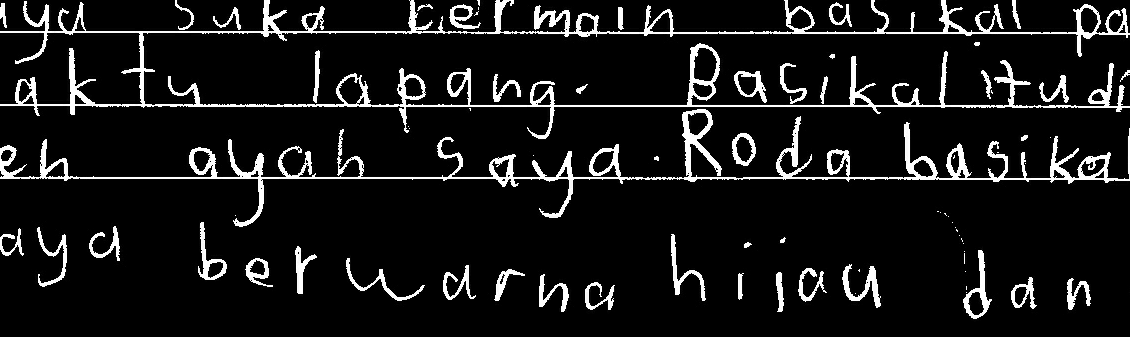 aya suka bermain basikal pa
aktu lapang. Basikal itu di
eh ayah saya. Roda basikal
aya berwarna hijau dan